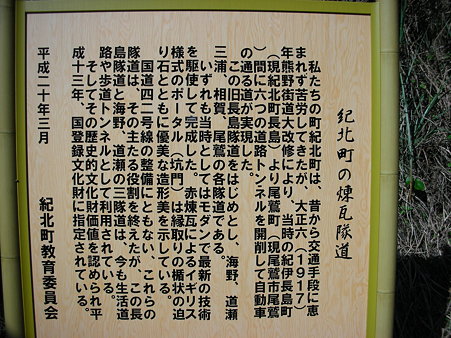 紀北町の煉瓦隧道
私たちの町紀北町は、昔から交通手段に恵
まれず苦労してきたが、大正六(1917)
年熊野街道大改修により、当時の紀伊長島町
(現紀北町長島)より尾鷲町(現尾鷲市尾鷲
)間に六つの道路トンネルを開削して自動車
の通る道が実現した。
この旧長島隧道をはじめとし、海野、道瀬
三浦、相賀、尾鷲の各隧道である。
いずれも当時としてはモダンで最新の技術
を駆使して完成した。赤煉瓦によるイギリス
様式のポータル(坑門)は縁取りの楯状の迫
り石とともに優美な造形美を示している。
国道四二号線の整備にともない、これらの
隧道は、その主たる役割を終えたが、この長
島隧道と海野、道瀬の三隧道は、今も生活道
路や歩道トンネルとして利用されている。
そしてその歴史的文化財価値を認められ平
成十三年、国登録文化財に指定されている。
平成二十年三月
紀北町教育委員会